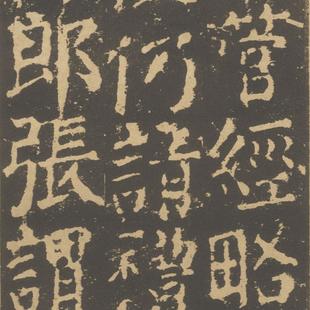 管經略
請禮
郎張謂